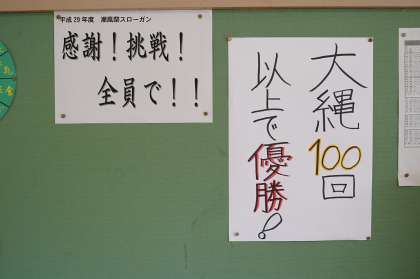 平成29年度 潮風祭スローガン
感謝!挑戦!
全員で!!
大縄
100回
以上で
優勝!